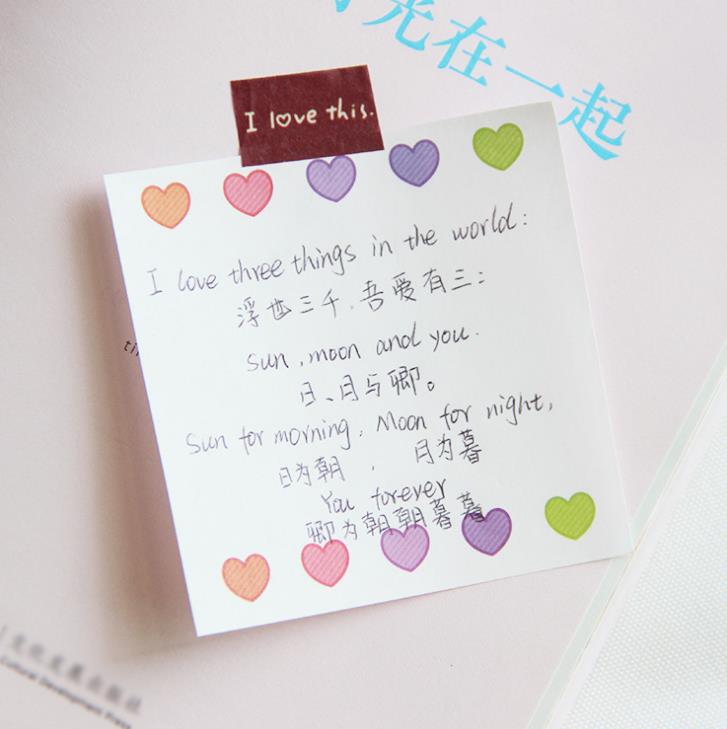 光在一起
I love this.
I love three things in the world:
浮世三千,吾爱有三:
Sun, moon and you.
日、月与卿。
Sun for morning, Moon for night,
日为朝,月为暮
You forever
卿为朝朝暮暮
Cultural Development Press